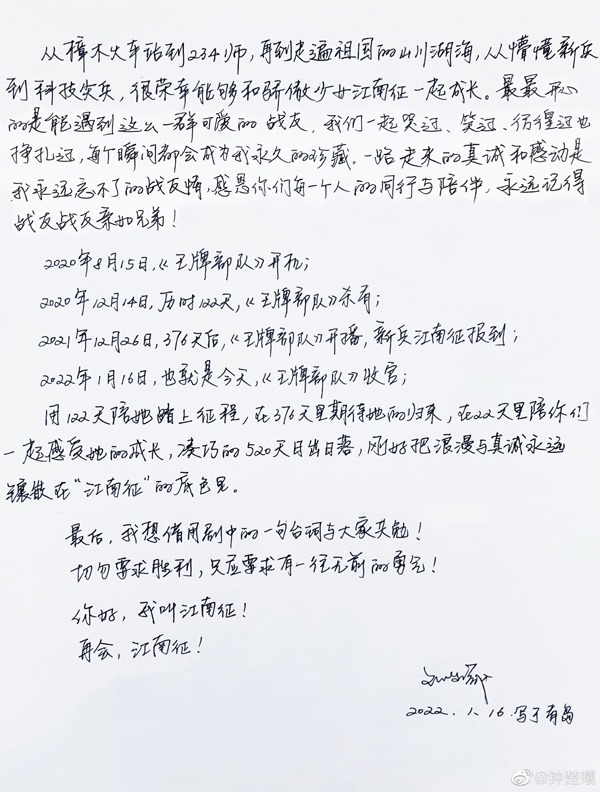 从樟木火车站到234师，再到走遍祖国的山川湖海，从懵懂新兵
到科技尖兵，很荣幸能够和骄傲少女江南征一起成长。最最开心
的是能遇到这么一群可爱的战友，我们一起哭过、笑过、彷徨过也
挣扎过，每个瞬间都会成为我永久的珍藏。一路走来的真诚和感动是
我永远忘不了的战友情，感恩你们每一个人的同行与陪伴，永远记得
战友战友亲如兄弟！
2020年8月15日，《王牌部队》开机；
2020年12月14日，历时122天，《王牌部队》杀青；
2021年12月26日，376天后，《王牌部队》开播，新兵江南征报到；
2022年1月16日，也就是今天，《王牌部队》收官；
用122天陪她踏上征程，在376天里期待她的归来，在22天里陪你们
一起感受她的成长，凑巧的520天日出日落，刚好把浪漫与真诚永远
镶嵌在“江南征”的底色里。
最后，我想借用剧中的一句台词与大家共勉！
切勿要求胜利，只应要求有一往无前的勇气！
你好，我叫江南征！
再会，江南征！
2022.1.16.写于青岛
@钟楚曦